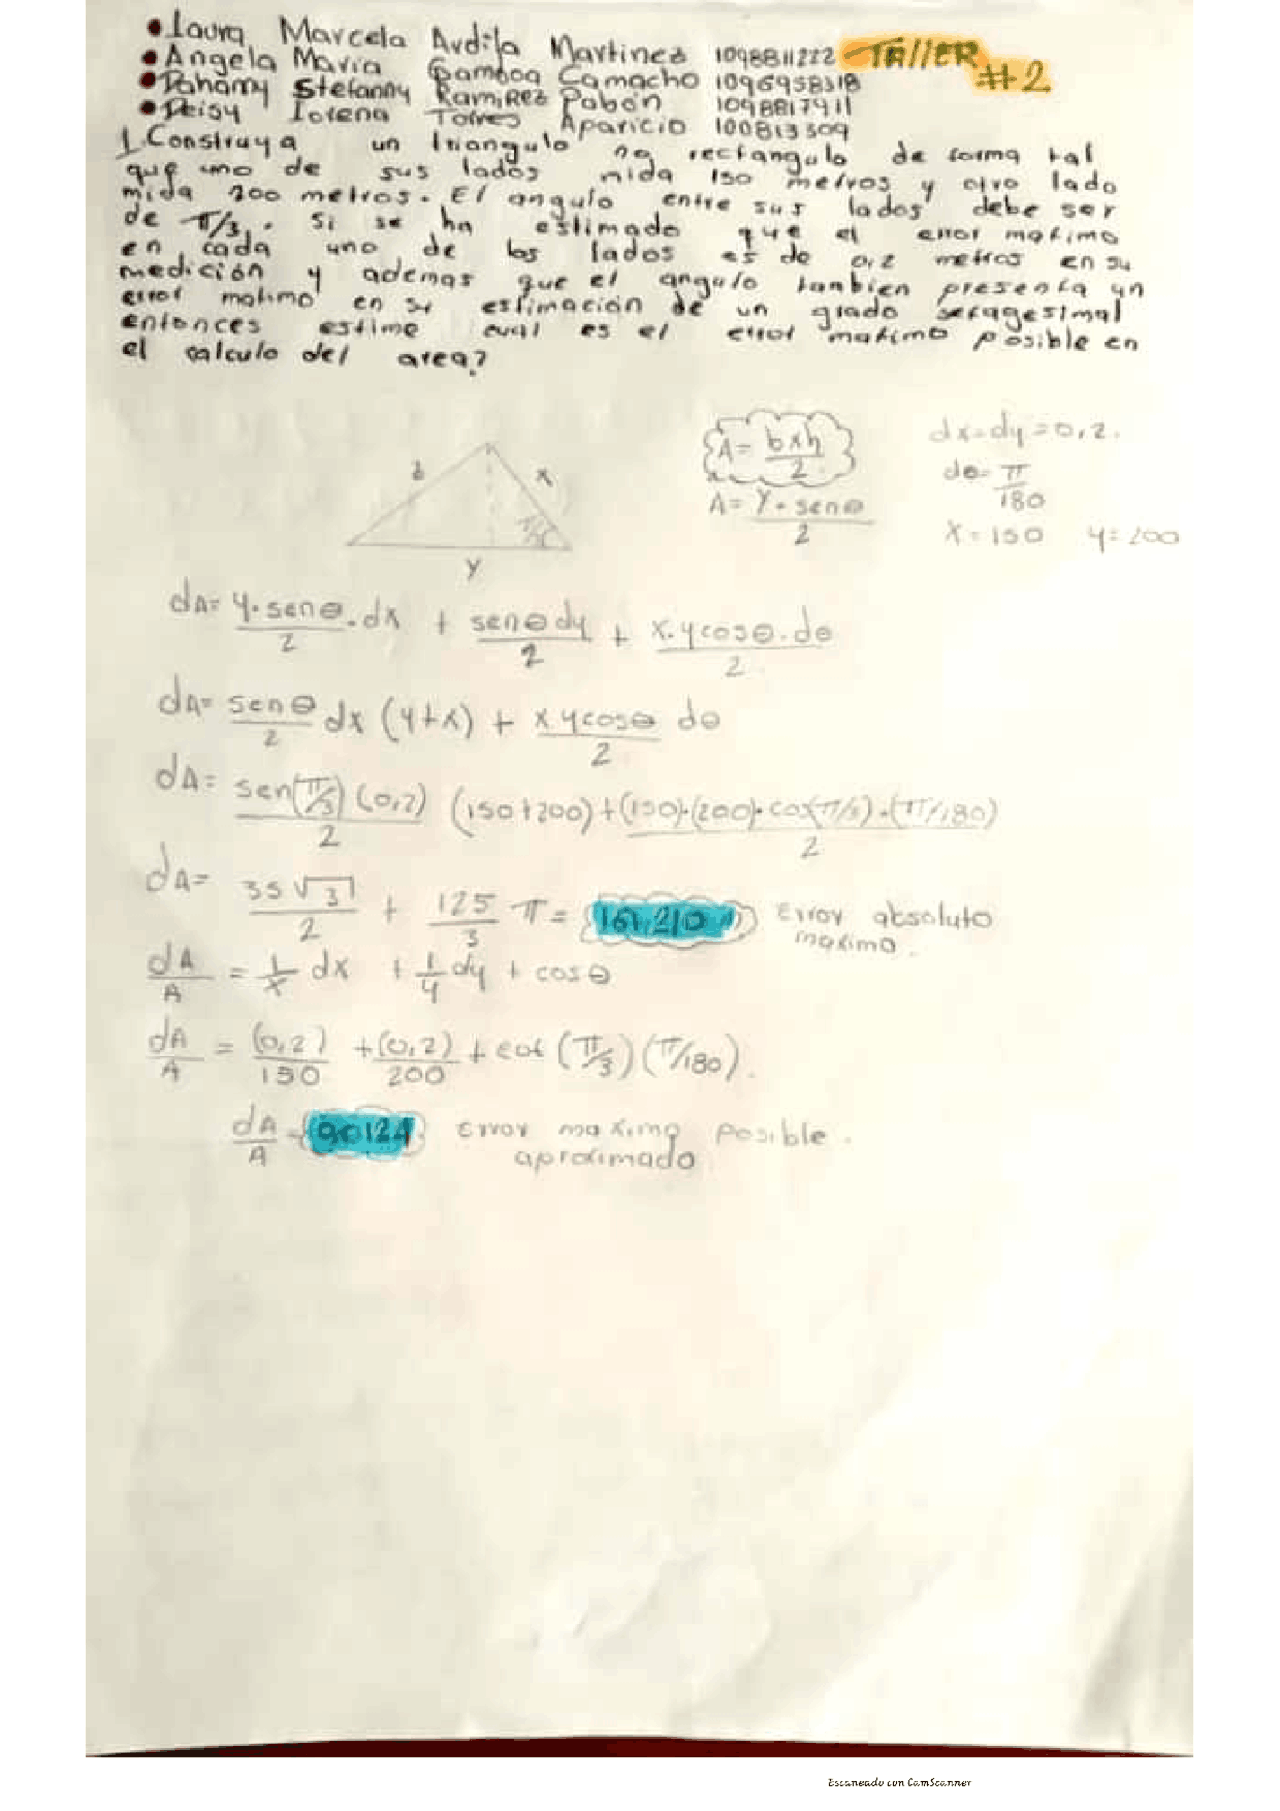 • Laura Marcela Ardila Martinez 1098811222 TALLER
• Angela Maria Gamboa Camacho 1096958318 #2
• Dahamy Stefanny Ramirez Pabón 1098817911
• Deisy Lorena Torres Aparicio 100813309
1. Construya un triangulo no rectangulo de forma tal
que uno de sus lados mida 150 metros y otro lado
mida 200 metros. El angulo entre sus lados debe ser
de π/3. Si se ha estimado que el error maximo
en cada uno de los lados es de 0,2 metros en su
medición y ademas que el angulo tanbien presenta un
error maximo en su estimación de un grado sexagesimal
entonces estime cual es el error maximo posible en
el calculo del area?
A= bxh/2
dx=dy=0,2.
z x
dθ= π/180
A= y * senθ/2
x=150 y=200
π/3
y
dA= y.senθ/2 .dx + senθdy/2 + x.ycosθ.dθ/2
dA= senθ/2 dx (y+x) + xycosθ/2 dθ
dA= sen(π/3)(0,2)/2 (150+200)+(150).(200).cos(π/3).(π/180)/2
dA= 35√3/2 + 125/3 π= 161,210 Error absoluto
maximo.
dA/A = 1/x dx + 1/y dy + cosθ
dA/A = (0,2)/150 +(0,2)/200 + cot (π/3)(π/180).
dA/A = Error maximo posible.
aproximado
Escaneado con CamScanner